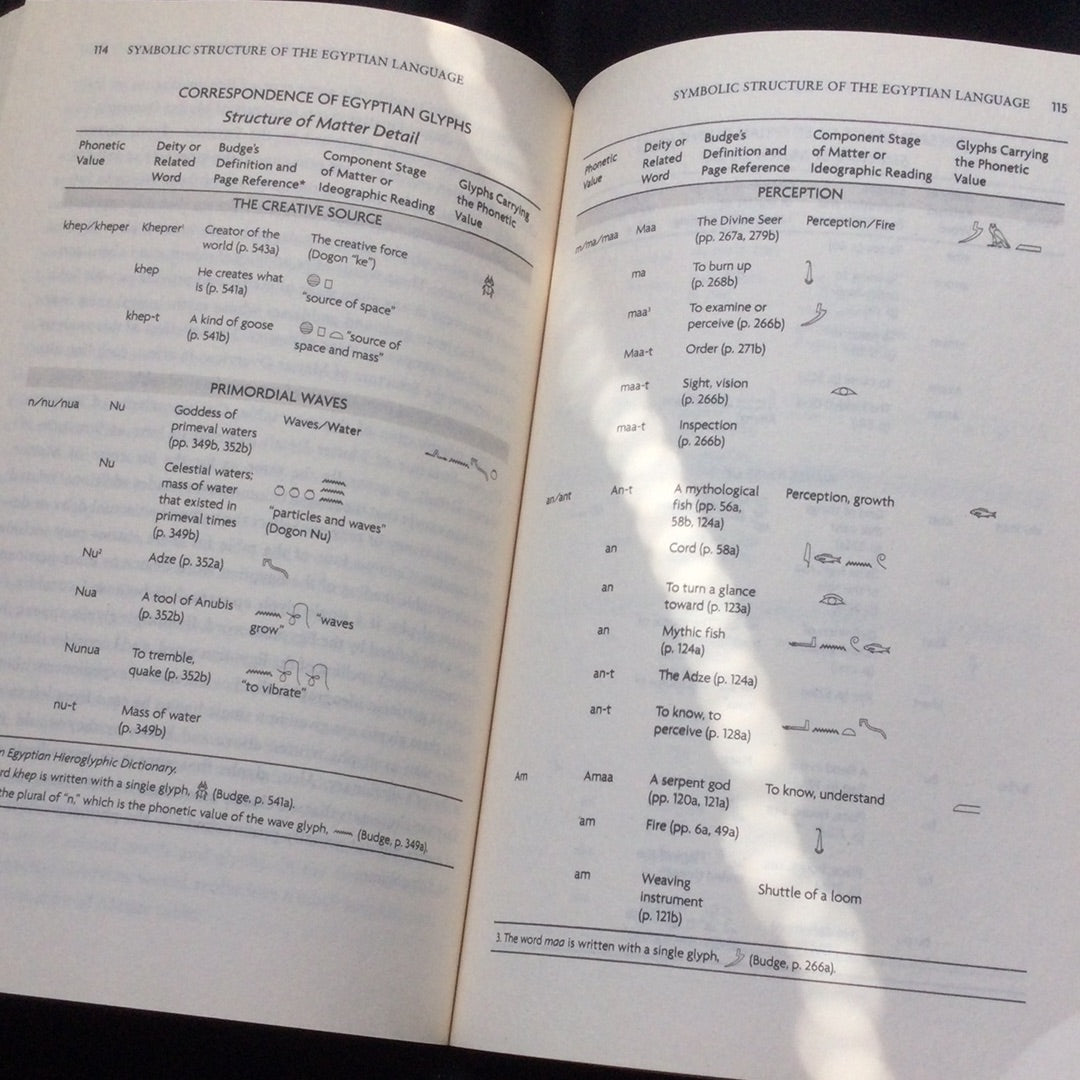 114 SYMBOLIC STRUCTURE OF THE EGYPTIAN LANGUAGE
CORRESPONDENCE OF EGYPTIAN GLYPHS
Structure of Matter Detail
Phonetic Value
Deity or Related Word
Budge's Definition and Page Reference*
Component Stage of Matter or Ideographic Reading
Glyphs Carrying the Phonetic Value
THE CREATIVE SOURCE
khep/kheper Kheprer¹ Creator of the world (p. 543a) The creative force (Dogon "ke")
khep He creates what is (p. 541a) "source of space"
khep-t A kind of goose (p. 541b) "source of space and mass"
PRIMORDIAL WAVES
n/nu/nua Nu Goddess of primeval waters (pp. 349b, 352b) Waves/Water
Nu Celestial waters; mass of water that existed in primeval times (p. 349b) "particles and waves" (Dogon Nu)
Nu² Adze (p. 352a)
Nua A tool of Anubis (p. 352b) "waves grow"
Nunua To tremble, quake (p. 352b) "to vibrate"
nu-t Mass of water (p. 349b)
n Egyptian Hieroglyphic Dictionary.
rd khep is written with a single glyph, (Budge, p. 541a).
the plural of "n," which is the phonetic value of the wave glyph, (Budge, p. 349a).
SYMBOLIC STRUCTURE OF THE EGYPTIAN LANGUAGE 115
Phonetic Value
Deity or Related Word
Budge's Definition and Page Reference
Component Stage of Matter or Ideographic Reading
Glyphs Carrying the Phonetic Value
PERCEPTION
m/ma/maa Maa The Divine Seer (pp. 267a, 279b) Perception/Fire
ma To burn up (p. 268b)
maa³ To examine or perceive (p. 266b)
Maa-t Order (p. 271b)
maa-t Sight, vision (p. 266b)
maa-t Inspection (p. 266b)
an/ant An-t A mythological fish (pp. 56a, 58b, 124a) Perception, growth
an Cord (p. 58a)
an To turn a glance toward (p. 123a)
an Mythic fish (p. 124a)
an-t The Adze (p. 124a)
an-t To know, to perceive (p. 128a)
Am Amaa A serpent god (pp. 120a, 121a) To know, understand
am Fire (pp. 6a, 49a)
am Weaving instrument (p. 121b) Shuttle of a loom
3. The word maa is written with a single glyph, (Budge, p. 266a).